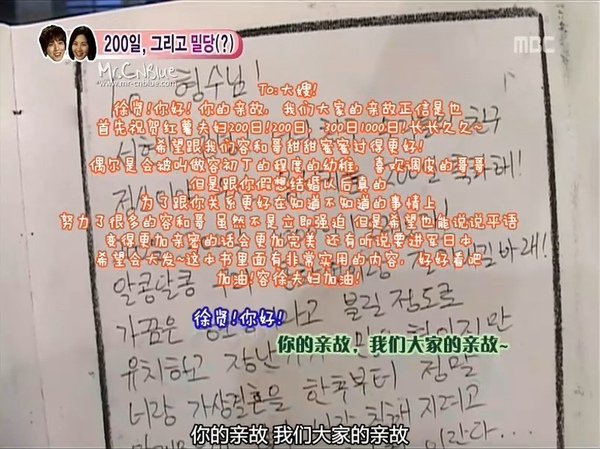 200일, 그리고 밀당(?)
MBC
Mr.CnBlue
*www.mr-cnblue.com*
형수님!
To:大嫂!
徐贤!你好! 你的亲故, 我们大家的亲故正信是也
首先祝贺红薯夫妇200日!200日, 300日!1000日!长长久久~
希望跟我们容和哥甜甜蜜蜜过得更好!
偶尔是会被叫做容初丁的程度的幼稚, 喜欢调皮的哥哥
但是跟你假想结婚以后真的~
为了跟你关系更好在知道不知道的事情上
努力了很多的容和哥 虽然不是立即强迫 但是希望也能说说平语
变得更加亲密的话会更加完美 还有听说要进军日本
希望会大发~这本书里面有非常实用的内容, 好好看吧
加油!容徐夫妇加油!
알콩달콩
가끔은 라고 불릴 정도로
유치하고 장난 하지만
너랑 가상결혼을 한후부터 정말
徐贤!你好!
你的亲故, 我们大家的亲故~
你的亲故 我们大家的亲故